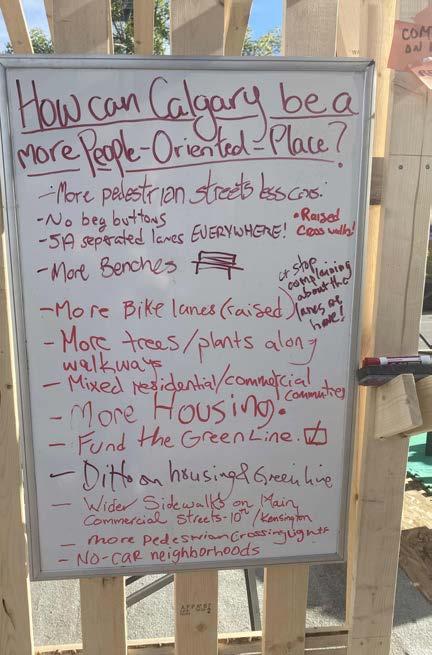 How can Calgary be a
more People-Oriented=Place?
- More pedestrian streets less cars.
- No beg buttons
- 5A seperated lanes EVERYWHERE!
• Raised
Cross walks!
- More Benches
or stop
complaining
about the
lanes we
have!
- More Bike lanes (raised)
- More trees/plants along
walkways
- Mixed residential/commercial
communities
- More Housing.
- Fund the Green Line.
- Ditto on housing & Green line
- Wider Sidewalks on Main
Commercial Streets - 10th/Kensington
- More Pedestrian Crossing Lights
- NO-CAR neighborhoods